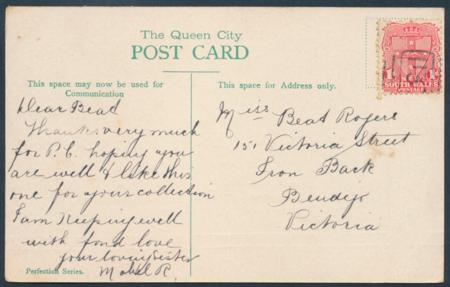 The Queen City
POST CARD
This space may now be used for
Communication
This space for Address only.
Dear Bead
Thanks very much
for P.C. hoping you
are well & like this
one for your collection
I am Keeping well
with fond love
your loving sister
Mabel R.
Perfection Series.
Miss Beat Rogers
151 Victoria Street
Iron Back
Bendigo
Victoria
SOUTH WALES